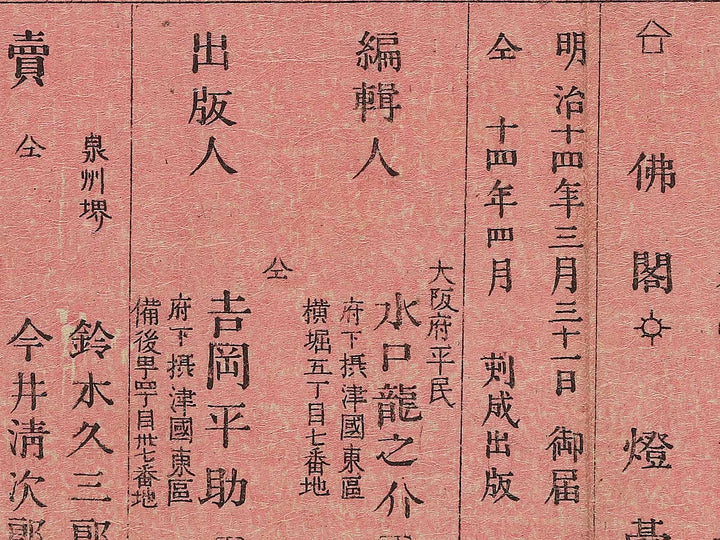 佛閣 燈臺
明治十四年三月三十一日 御届
仝 十四年四月 刻成出版
編輯人
大阪府平民
水口龍之介
府下摂津國東區
横堀五丁目七番地
出版人
仝
吉岡平助
府下摂津國東區
備後甼四丁目卅七番地
賣
泉州堺
鈴木久三郎
仝
今井清次郎